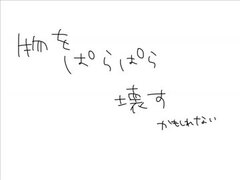 を
ぱらぱら
壊す
かもしれない